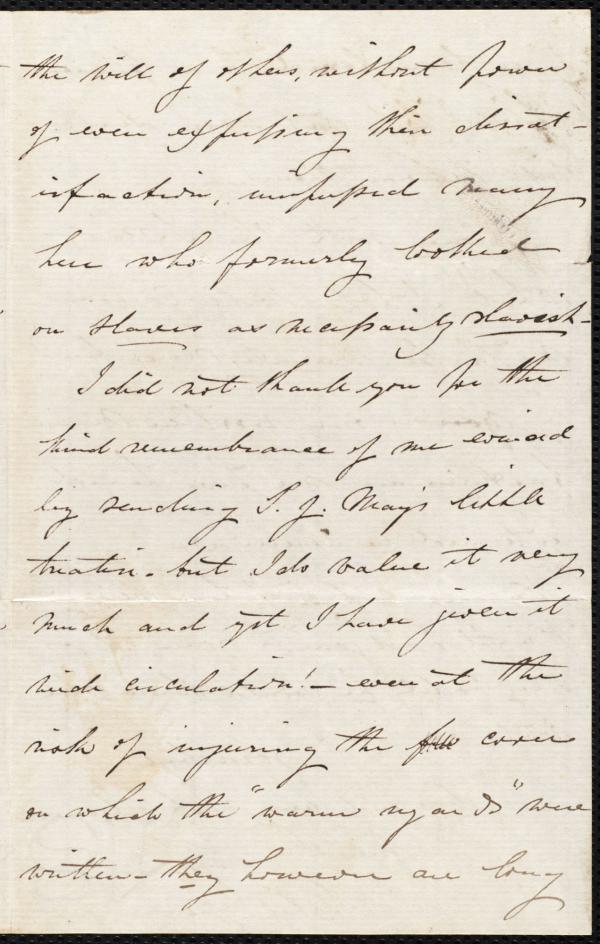 the will of others, without power
of even expressing their dissat-
isfaction, impressed many
here who formerly looked
on slaves as necessarily slavish-
I did not thank you for the
kind remembrance of me evinced
by sending S. J. May's little
treatise - but I do value it very
much and yet I have given it
wide circulation! - even at the
risk of injuring the cover
on which the "warm regards" were
written - they however are long